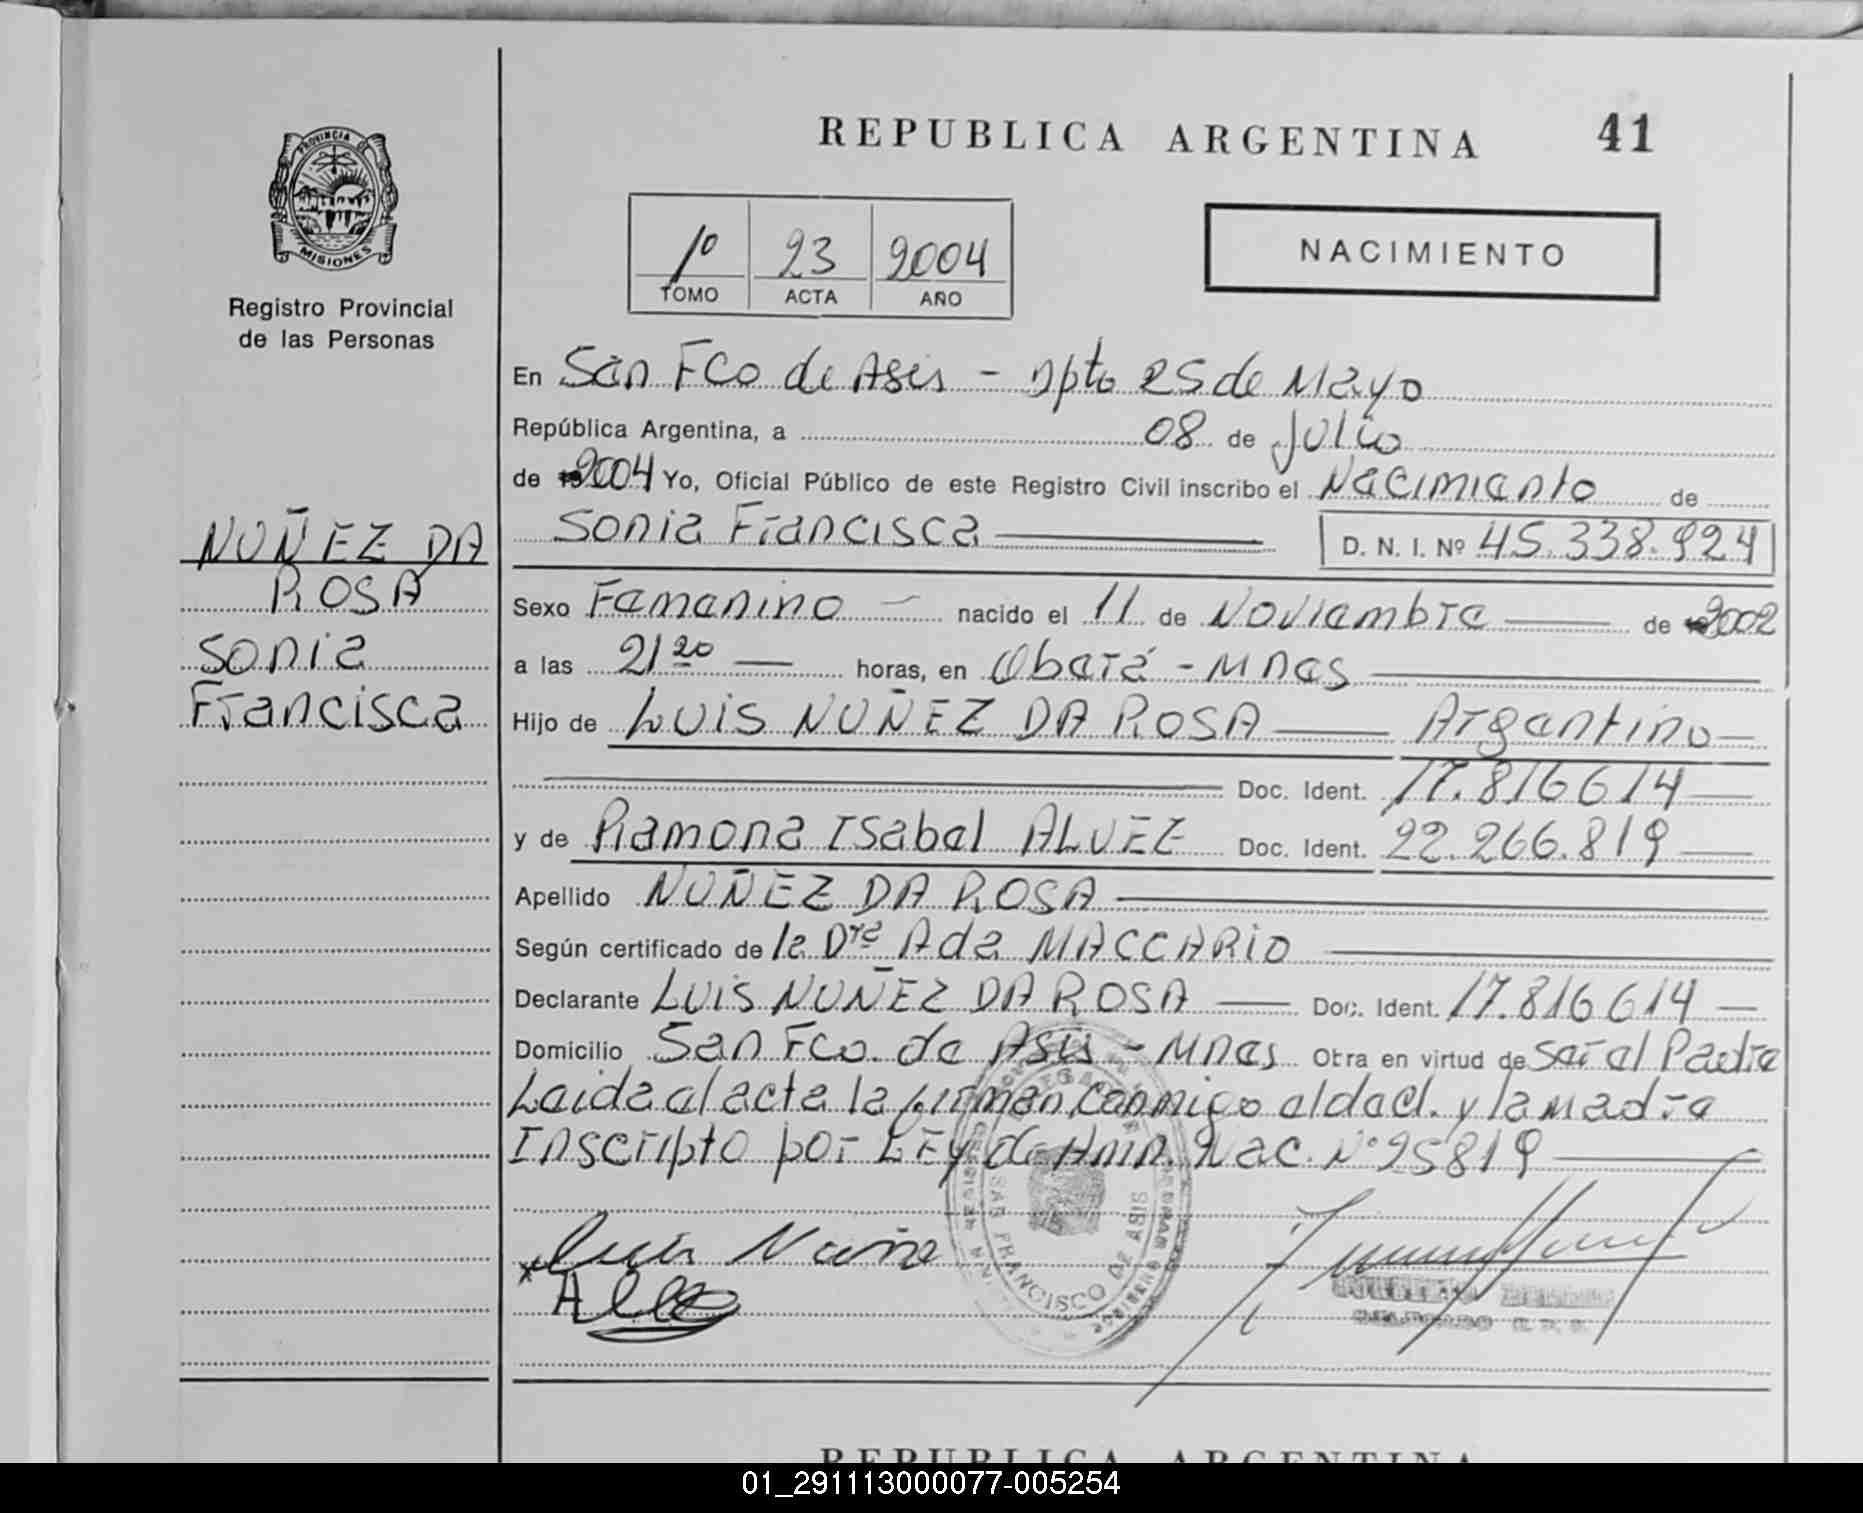 REPUBLICA ARGENTINA 41
PROVINCIA DE
MISIONES
Registro Provincial
de las Personas
1º 23 2004
TOMO ACTA AÑO
NACIMIENTO
En San Fco de Asis - Dpto 25 de Mayo
República Argentina, a 08 de Julio
de 2004 Yo, Oficial Público de este Registro Civil inscribo el Nacimiento de
Sonia Francisca D. N. I. Nº 45.338.924
NUÑEZ DA
ROSA
Sonia
Francisca
Sexo Femenino nacido el 11 de Noviembre de 2002
a las 21 20 horas, en Oberá - Mnes
Hijo de LUIS NUÑEZ DA ROSA Argentino
Doc. Ident. 17.816614
y de Ramona Isabel ALVEZ Doc. Ident. 22.266.819
Apellido NUÑEZ DA ROSA
Según certificado de la Dra Ada MACCARIO
Declarante LUIS NUÑEZ DA ROSA Doc. Ident. 17.816614
Domicilio San Fco. de Asis - Mnes Obra en virtud de ser el Padre
Leida el acta la firman conmigo el decl. y la madre
Inscripto por LEY de Amn. Nac. Nº 25819
SAN FRANCISCO DE ASIS
Luis Nuñe
REPUBLICA ARGENTINA
01_291113000077-005254